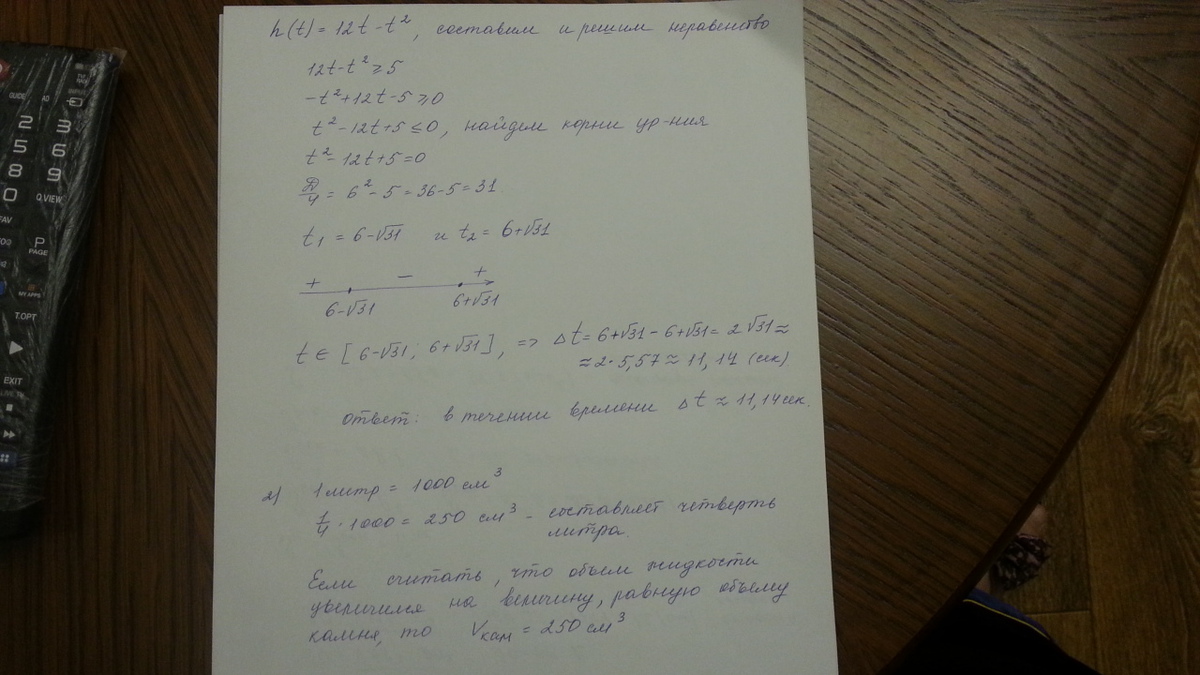 h(t) = 12t - t², составим и решим неравенство
12t - t² ≥ 5
-t² + 12t - 5 ≥ 0
t² - 12t + 5 ≤ 0, найдем корни ур-ния
t² - 12t + 5 = 0
D/4 = 6² - 5 = 36 - 5 = 31
t₁ = 6 - √31 и t₂ = 6 + √31
+ − +
6-√31 6+√31
t ∈ [6-√31; 6+√31], => Δt = 6+√31 - 6+√31 = 2√31 ≈
≈ 2 · 5,57 ≈ 11,14 (сек)
ответ: в течении времени Δt ≈ 11,14 сек.
2) 1 литр = 1000 см³
1/4 · 1000 = 250 см³ - составляет четверть
литра.
Если считать, что объем жидкости
увеличился на величину, равную объему
камня, то Vкам = 250 см³
QUIDE
2 3
5 6
8 9
0 Q.VIEW
FAV
P
PAGE
MY APPS
T.OPT
EXIT